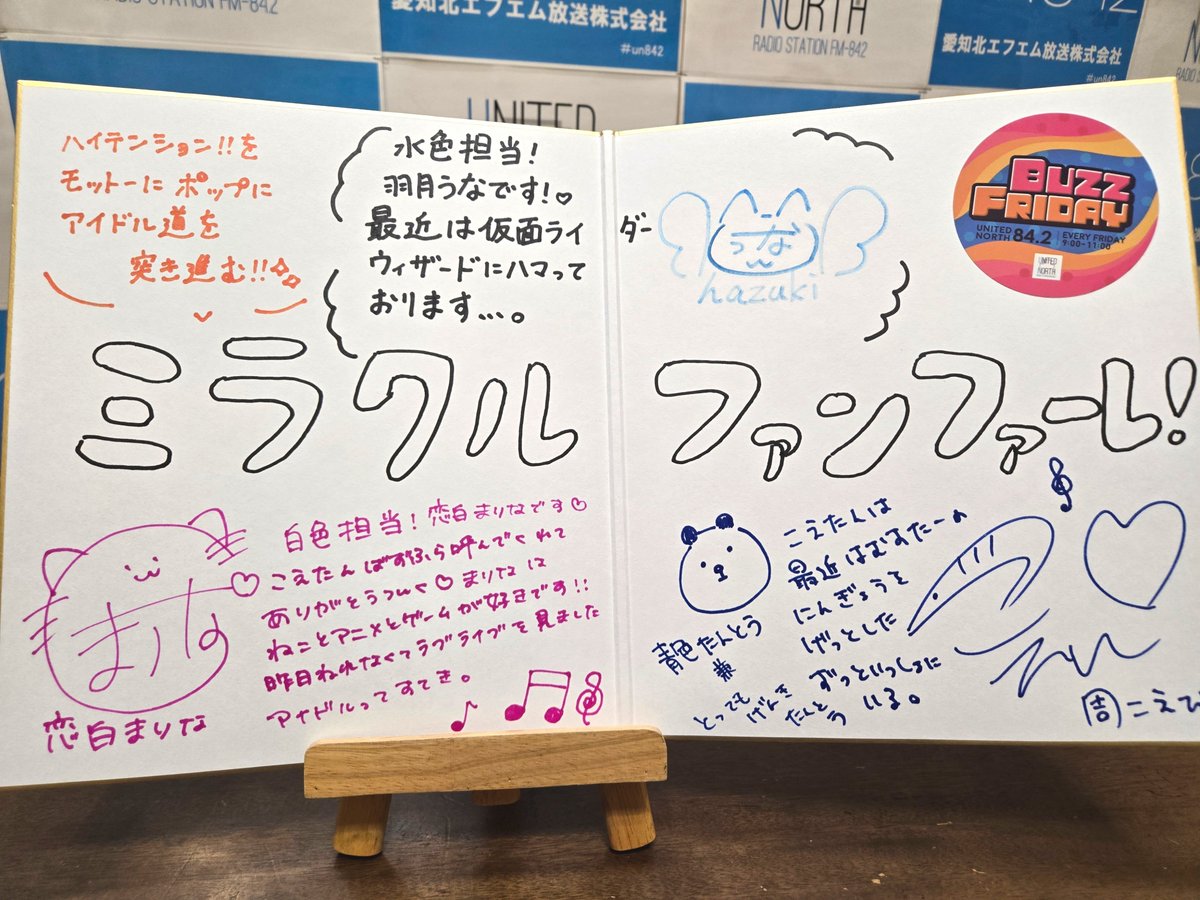 RADIO STATION FM-842
愛知北エフエム放送株式会社
#un842
NORTH
RADIO STATION FM-842
愛知北エフエム放送株式会社
#un842
UNITED
ハイテンション!!を
モットーに ポップに
アイドル道を
突き進む!!
水色担当!
羽月うなです!♡
最近は仮面ライダー
ウィザードにハマって
おります…。
うな
hazuki
BUZZ
FRIDAY
UNITED
NORTH 84.2
EVERY FRIDAY
9:00-11:00
UNITED
NORTH
ミラクル
ファンファーレ!
白色担当!恋白まりなです♡
こえたん ばずふら呼んでくれて
ありがとうつ♡まりなは
ねことアニメとゲームが好きです!!
昨日ねれなくてラブライブを見ました
アイドルってすてき。
まりな
恋白まりな
こえたんは
最近はむすたーの
にんぎょうを
げっとした
ずっといっしょに
いる。
青色たんとう
兼
とっても
げんき
たんとう